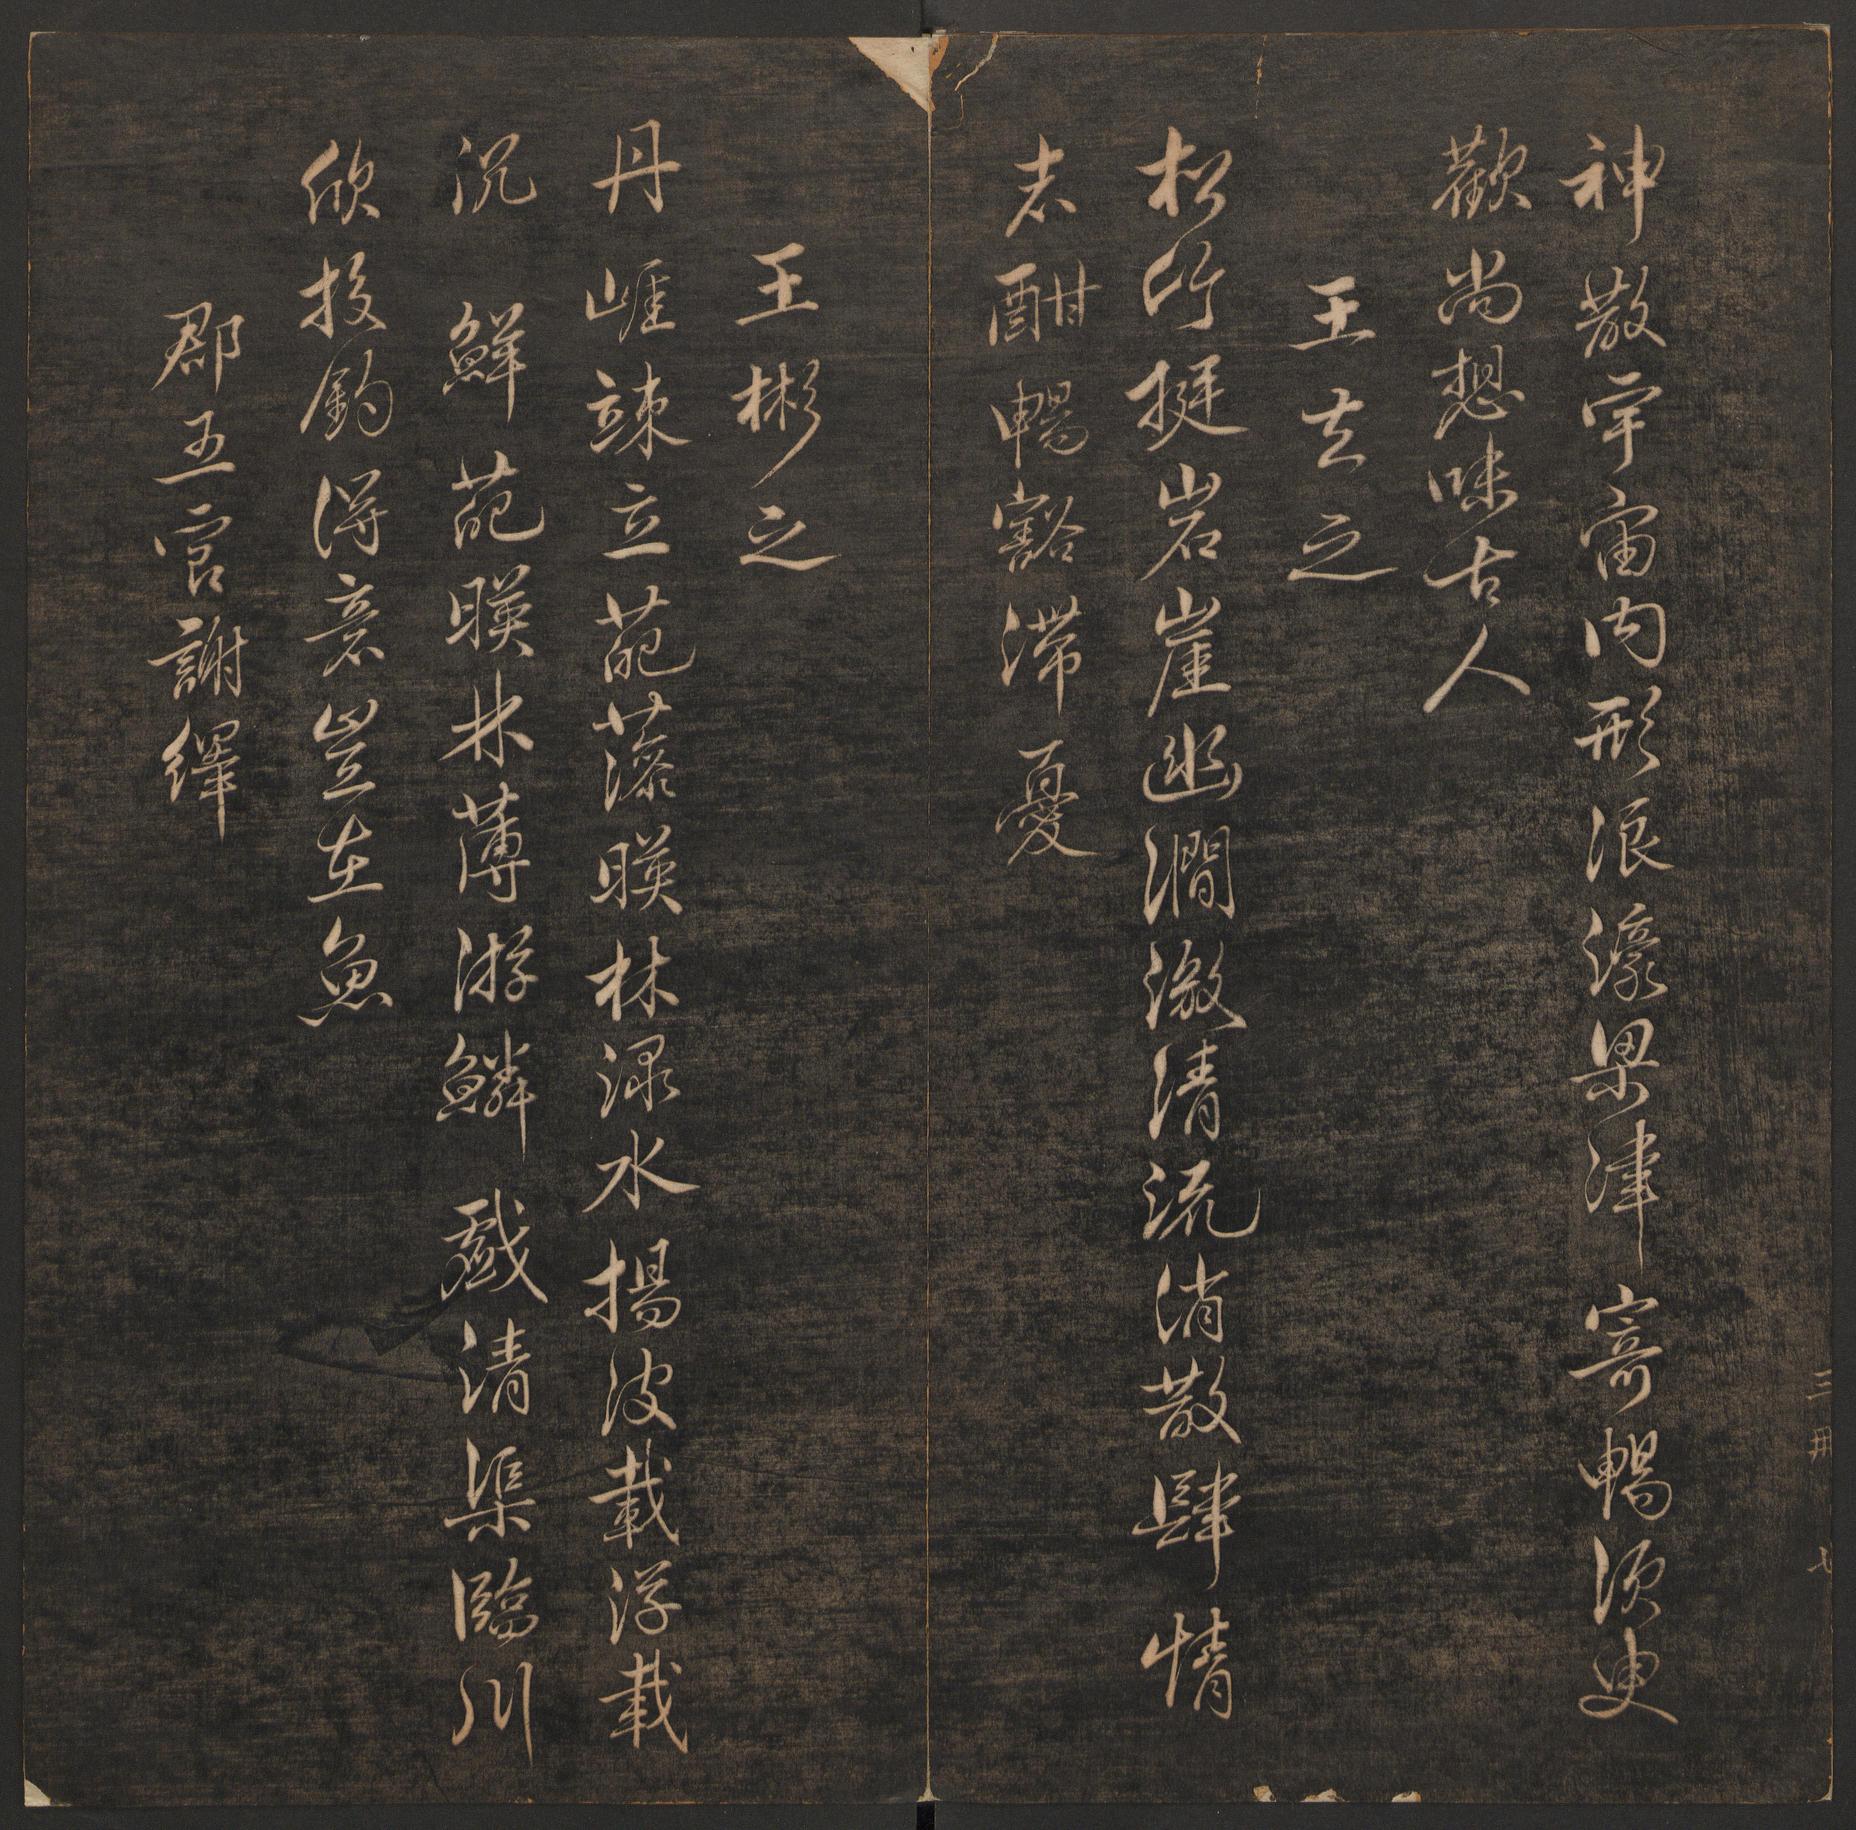 三冊 七
神散宇宙内形浪濠梁津寄暢須臾
歡尚想味古人
王玄之
松竹挺岩崖幽澗激清流消散肆情
志酣暢豁滯憂
王彬之
丹崕竦立葩藻暎林渌水揚波載浮載
沉 鮮葩暎林薄游鱗戲清渠臨川
欣投釣得意豈在魚
郡五官謝繹